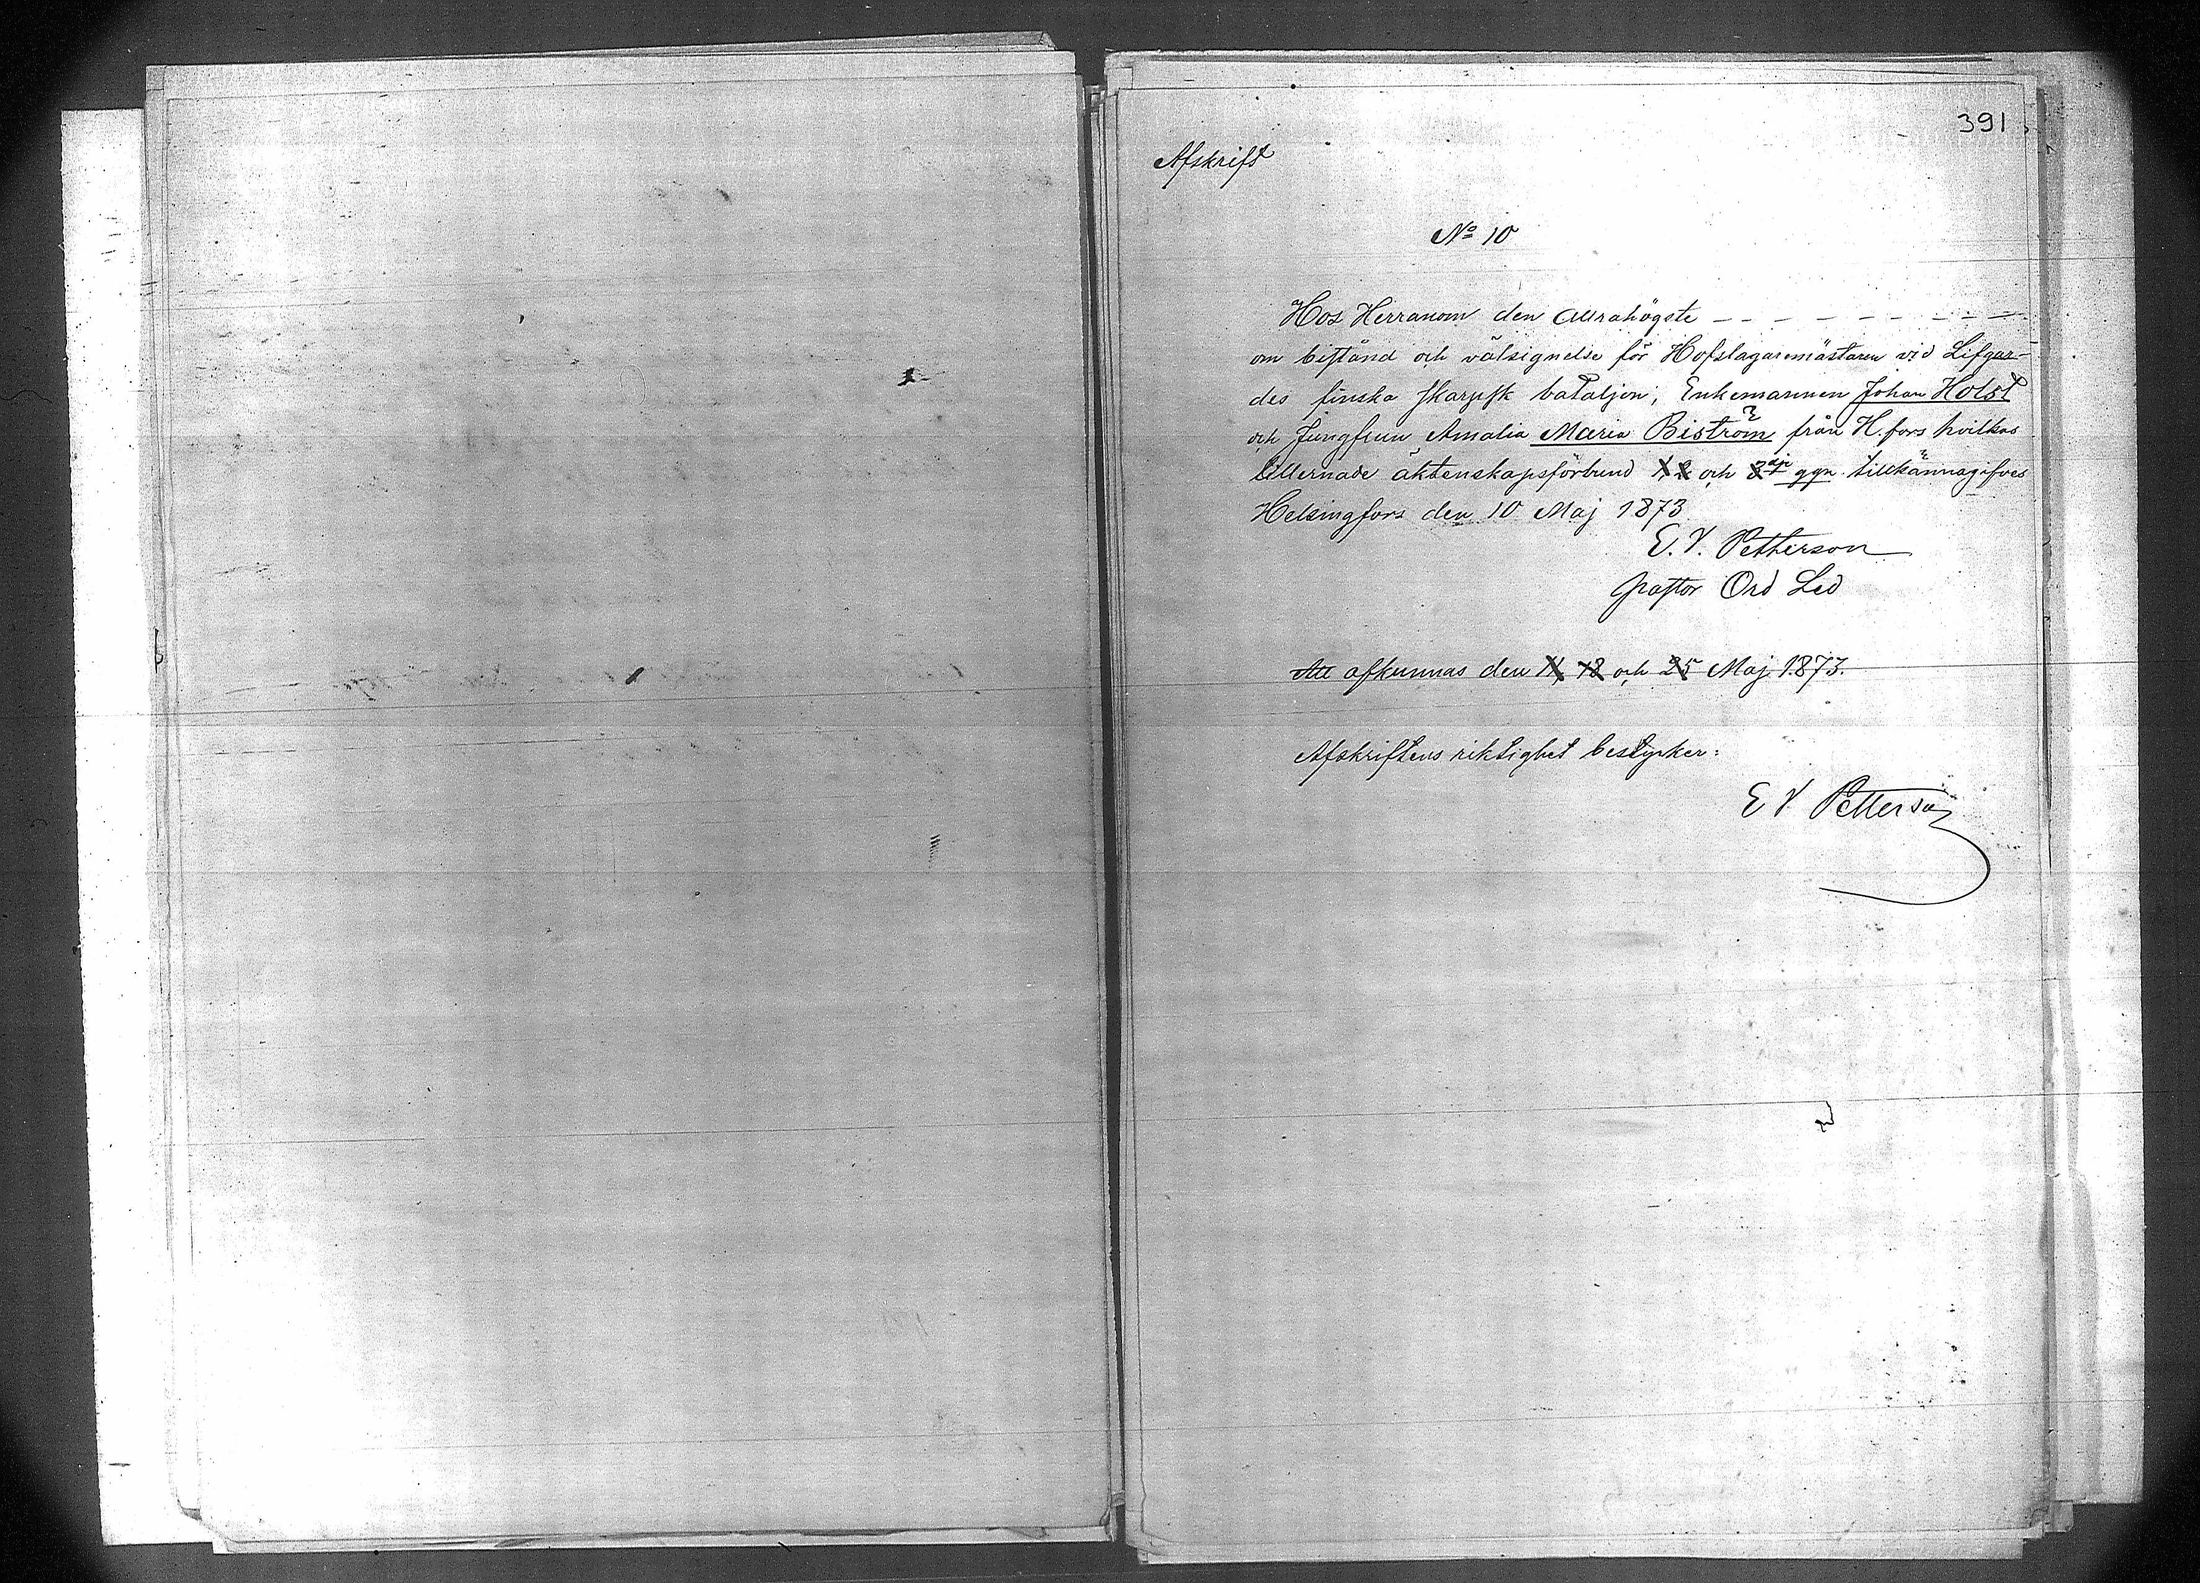 391
Afskrift
No 10
Hos Herranom den Allrahögste - - - - - - - -
om bistånd och välsignelse för Hofslagaremästaren vid Lifgar-
des finska skarpsk bataljon, Enkemannen Johan Holst
och Jungfrun Amalia Maria Biström från H.fors hvilkas
ärnade äktenskapsförbund 1, 2 och 3dje ggn tillkännagifves
Helsingfors den 10 Maj 1873
E. V. Petterson
pastor Ord Led
Att afkunnas den 11, 18 och 25 Maj 1873.
Afskriftens riktighet bestyrker:
E V Petterson